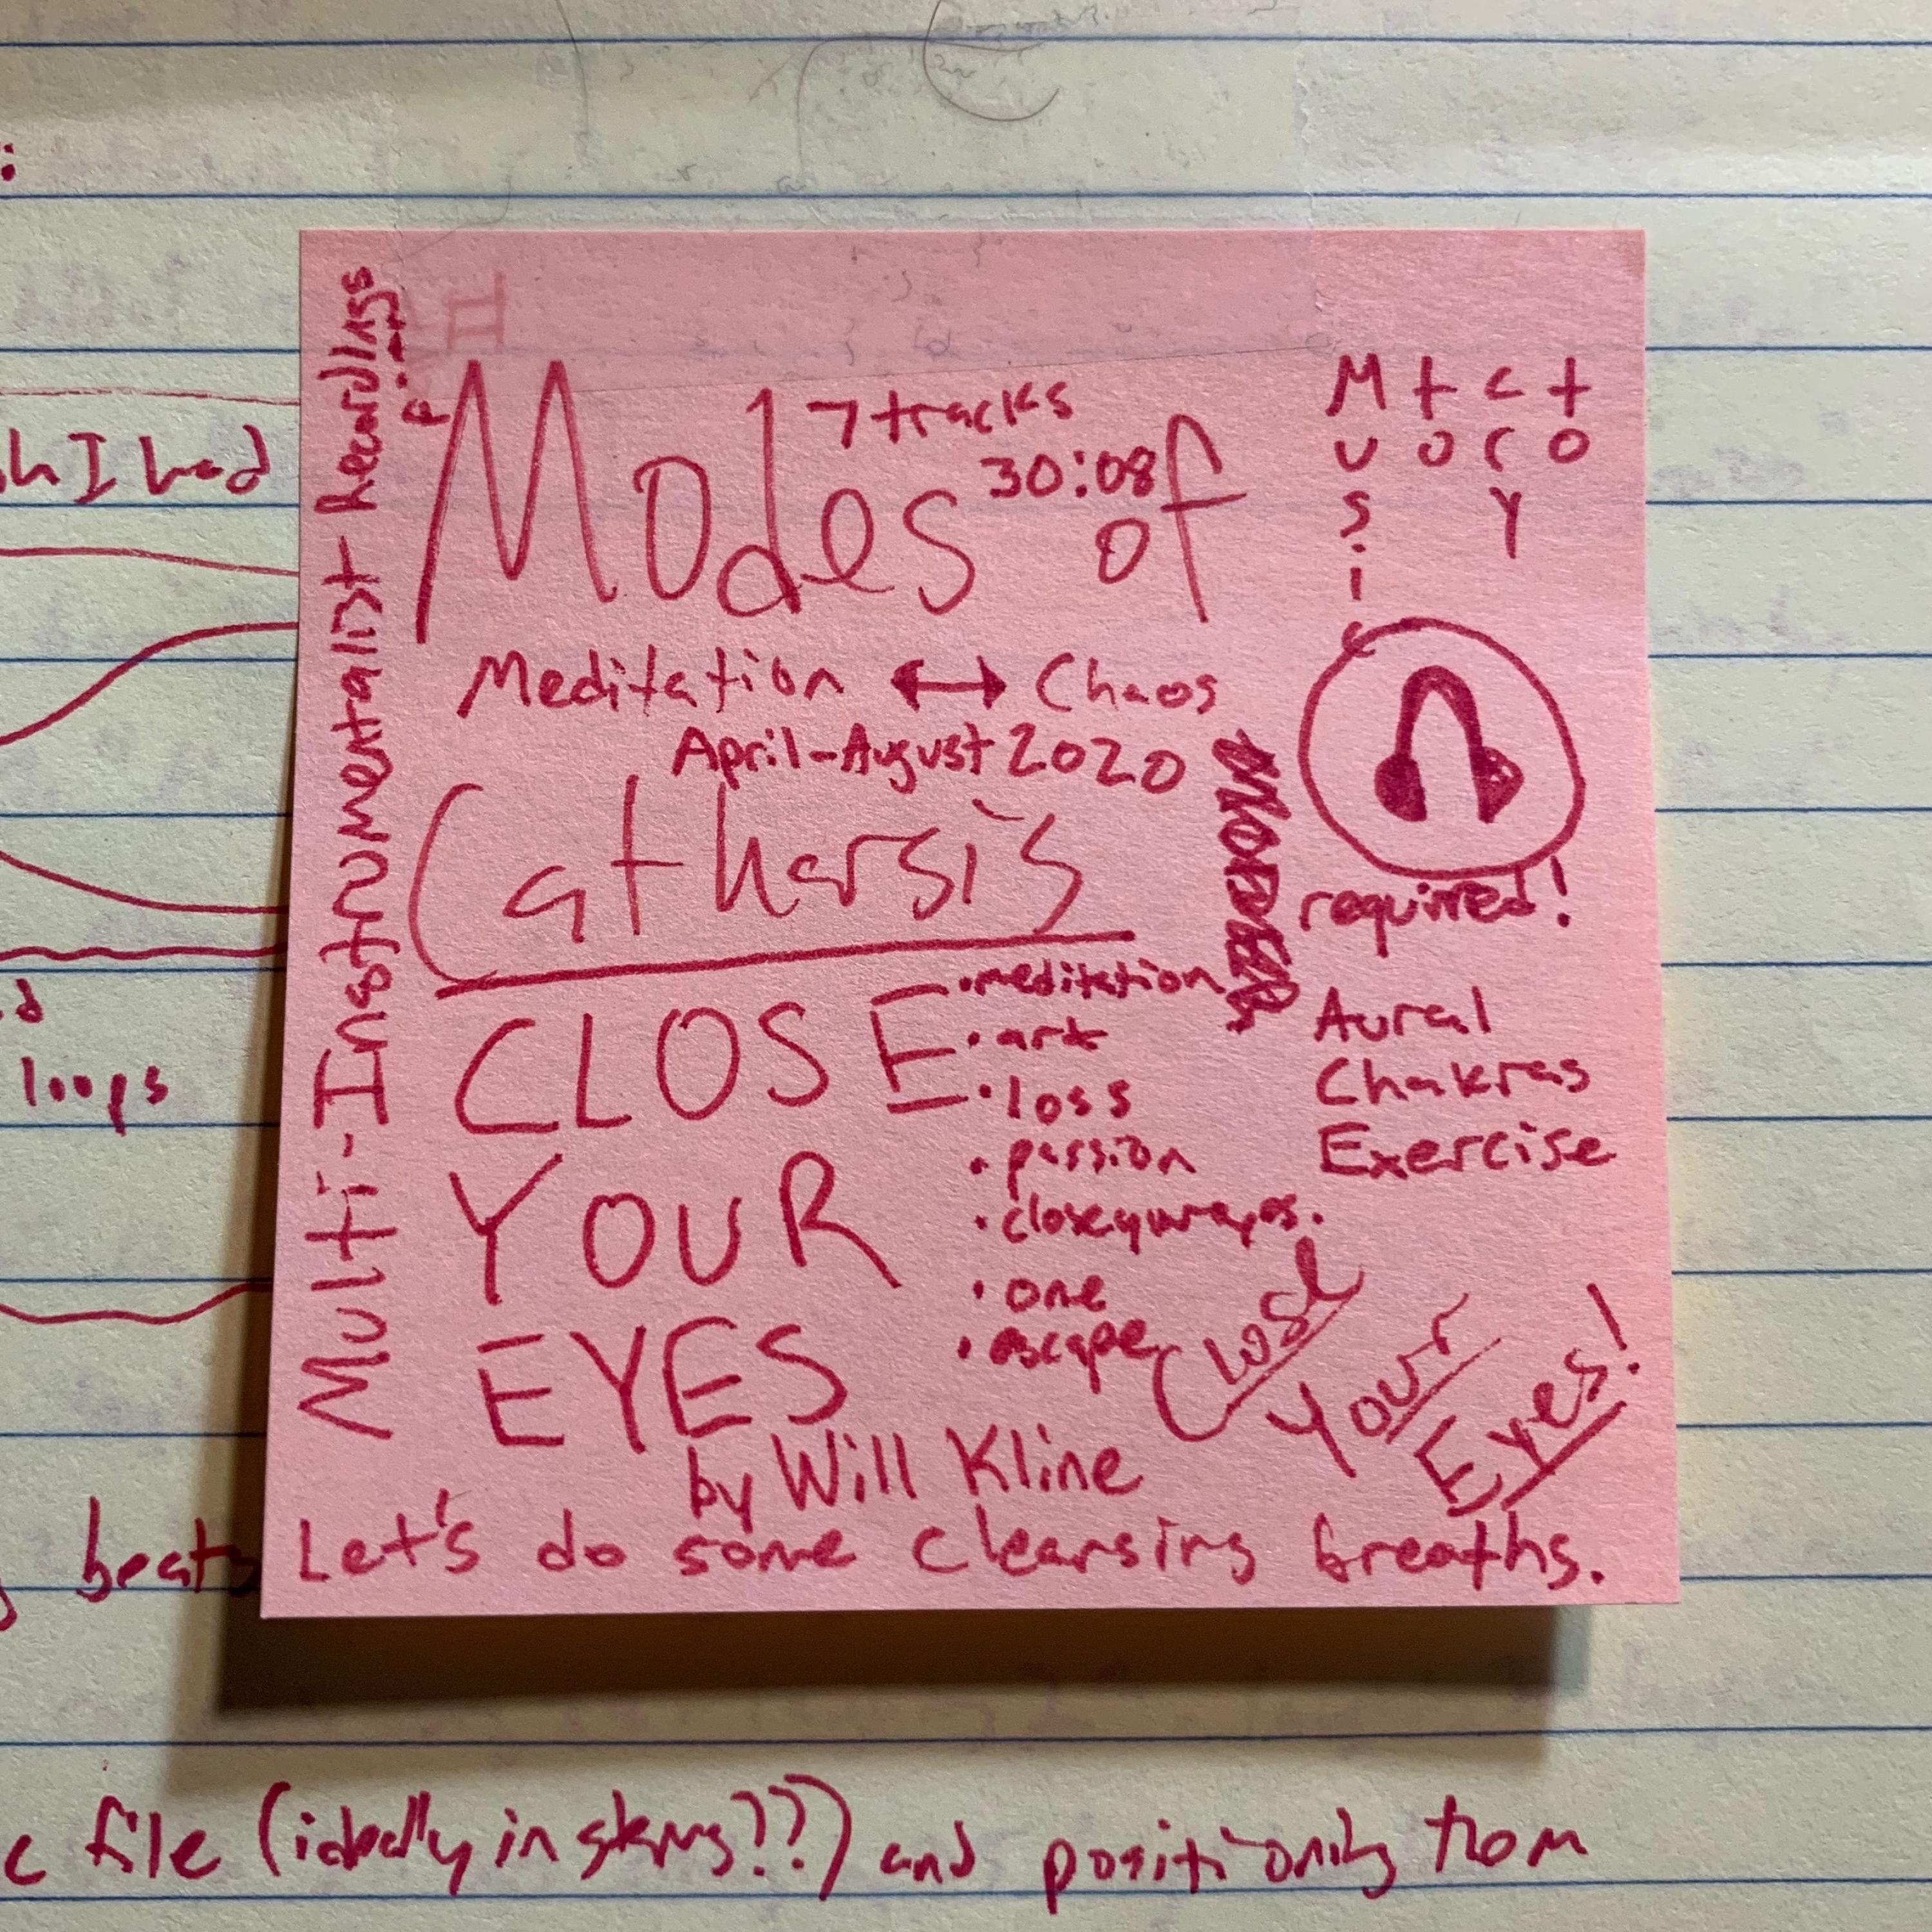 Multi-Instrumentalist Recordings
7 tracks
30:08
Modes of
Meditation ↔ Chaos
April-August 2020
Catharsis
CLOSE
YOUR
EYES
by Will Kline
• meditation
• art
• loss
• passion
• closeyoureyes.
• one
• escape
Music
to
cry
to
required!
Aural
Chakras
Exercise
Close
Your
Eyes!
Let's do some cleansing breaths.
:
h I had
d
loops
beats
c file (ideally in stems??) and positioning from